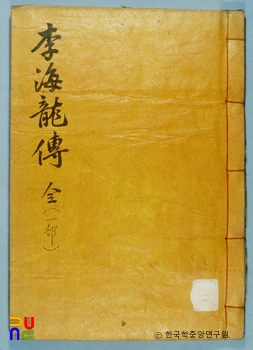 李海龍傳
全(一部)
PUNC
ⓒ 한국학중앙연구원